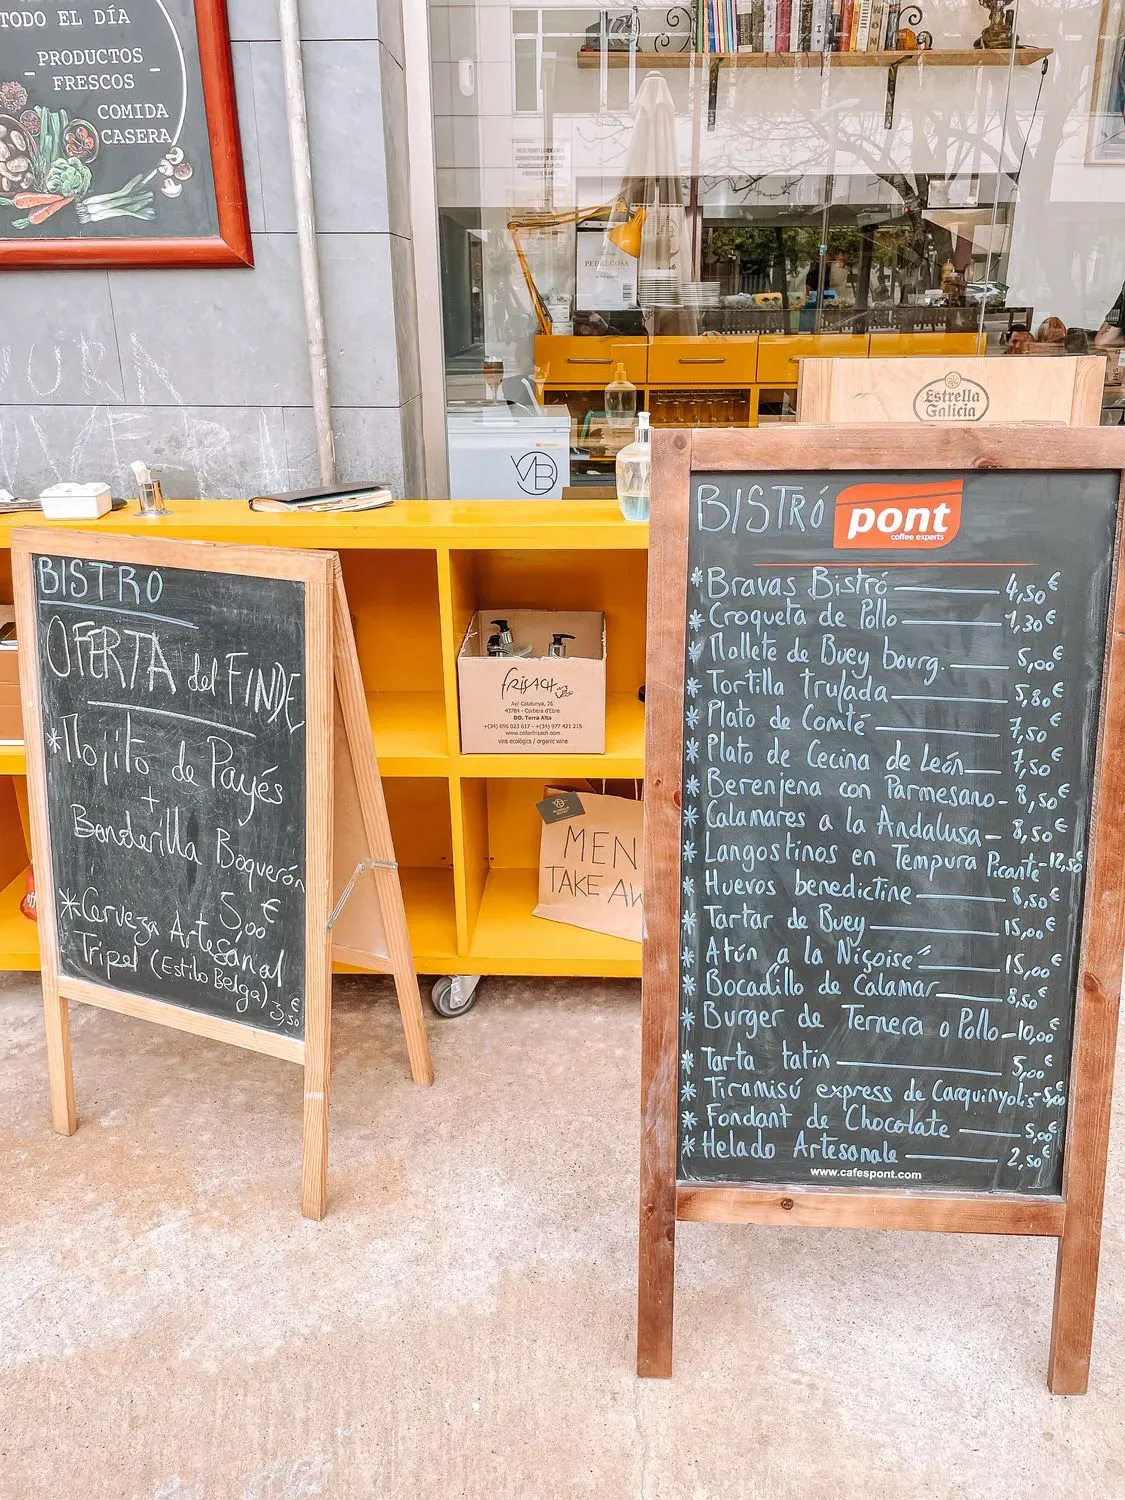 TODO EL DÍA
PRODUCTOS
- FRESCOS -
COMIDA
CASERA
PEDREGOSA
Estrella
Galicia
VB
BISTRO
OFERTA del FINDE
*Mojito de Payés
+
Banderilla Boquerón
5,00€
*Cerveza Artesanal
Tripel (Estilo Belga) 3,50€
frisach
Av/ Catalunya, 26
43784 - Corbera d'Ebre
DO. Terra Alta
+(34) 696 023 617 - +(34) 977 421 215
www.cellerfrisach.com
vins ecològics / organic wine
MEN
TAKE AW
BISTRÓ pont
coffee experts
* Bravas Bistró 4,50€
* Croqueta de Pollo 1,30€
* Mollete de Buey bourg. 5,00€
* Tortilla trufada 5,80€
* Plato de Comté 7,50€
* Plato de Cecina de León 7,50€
* Berenjena con Parmesano - 8,50€
* Calamares a la Andalusa - 8,50€
* Langostinos en Tempura Picante - 12,50€
* Huevos benedictine 8,50€
* Tartar de Buey 15,00€
* Atún a la Niçoise 15,00€
* Bocadillo de Calamar 8,50€
* Burger de Ternera o Pollo - 10,00€
* Tarta tatin 5,00€
* Tiramisú express de Carquinyolis - 5,00€
* Fondant de Chocolate 5,00€
* Helado Artesanale 2,50€
www.cafespont.com